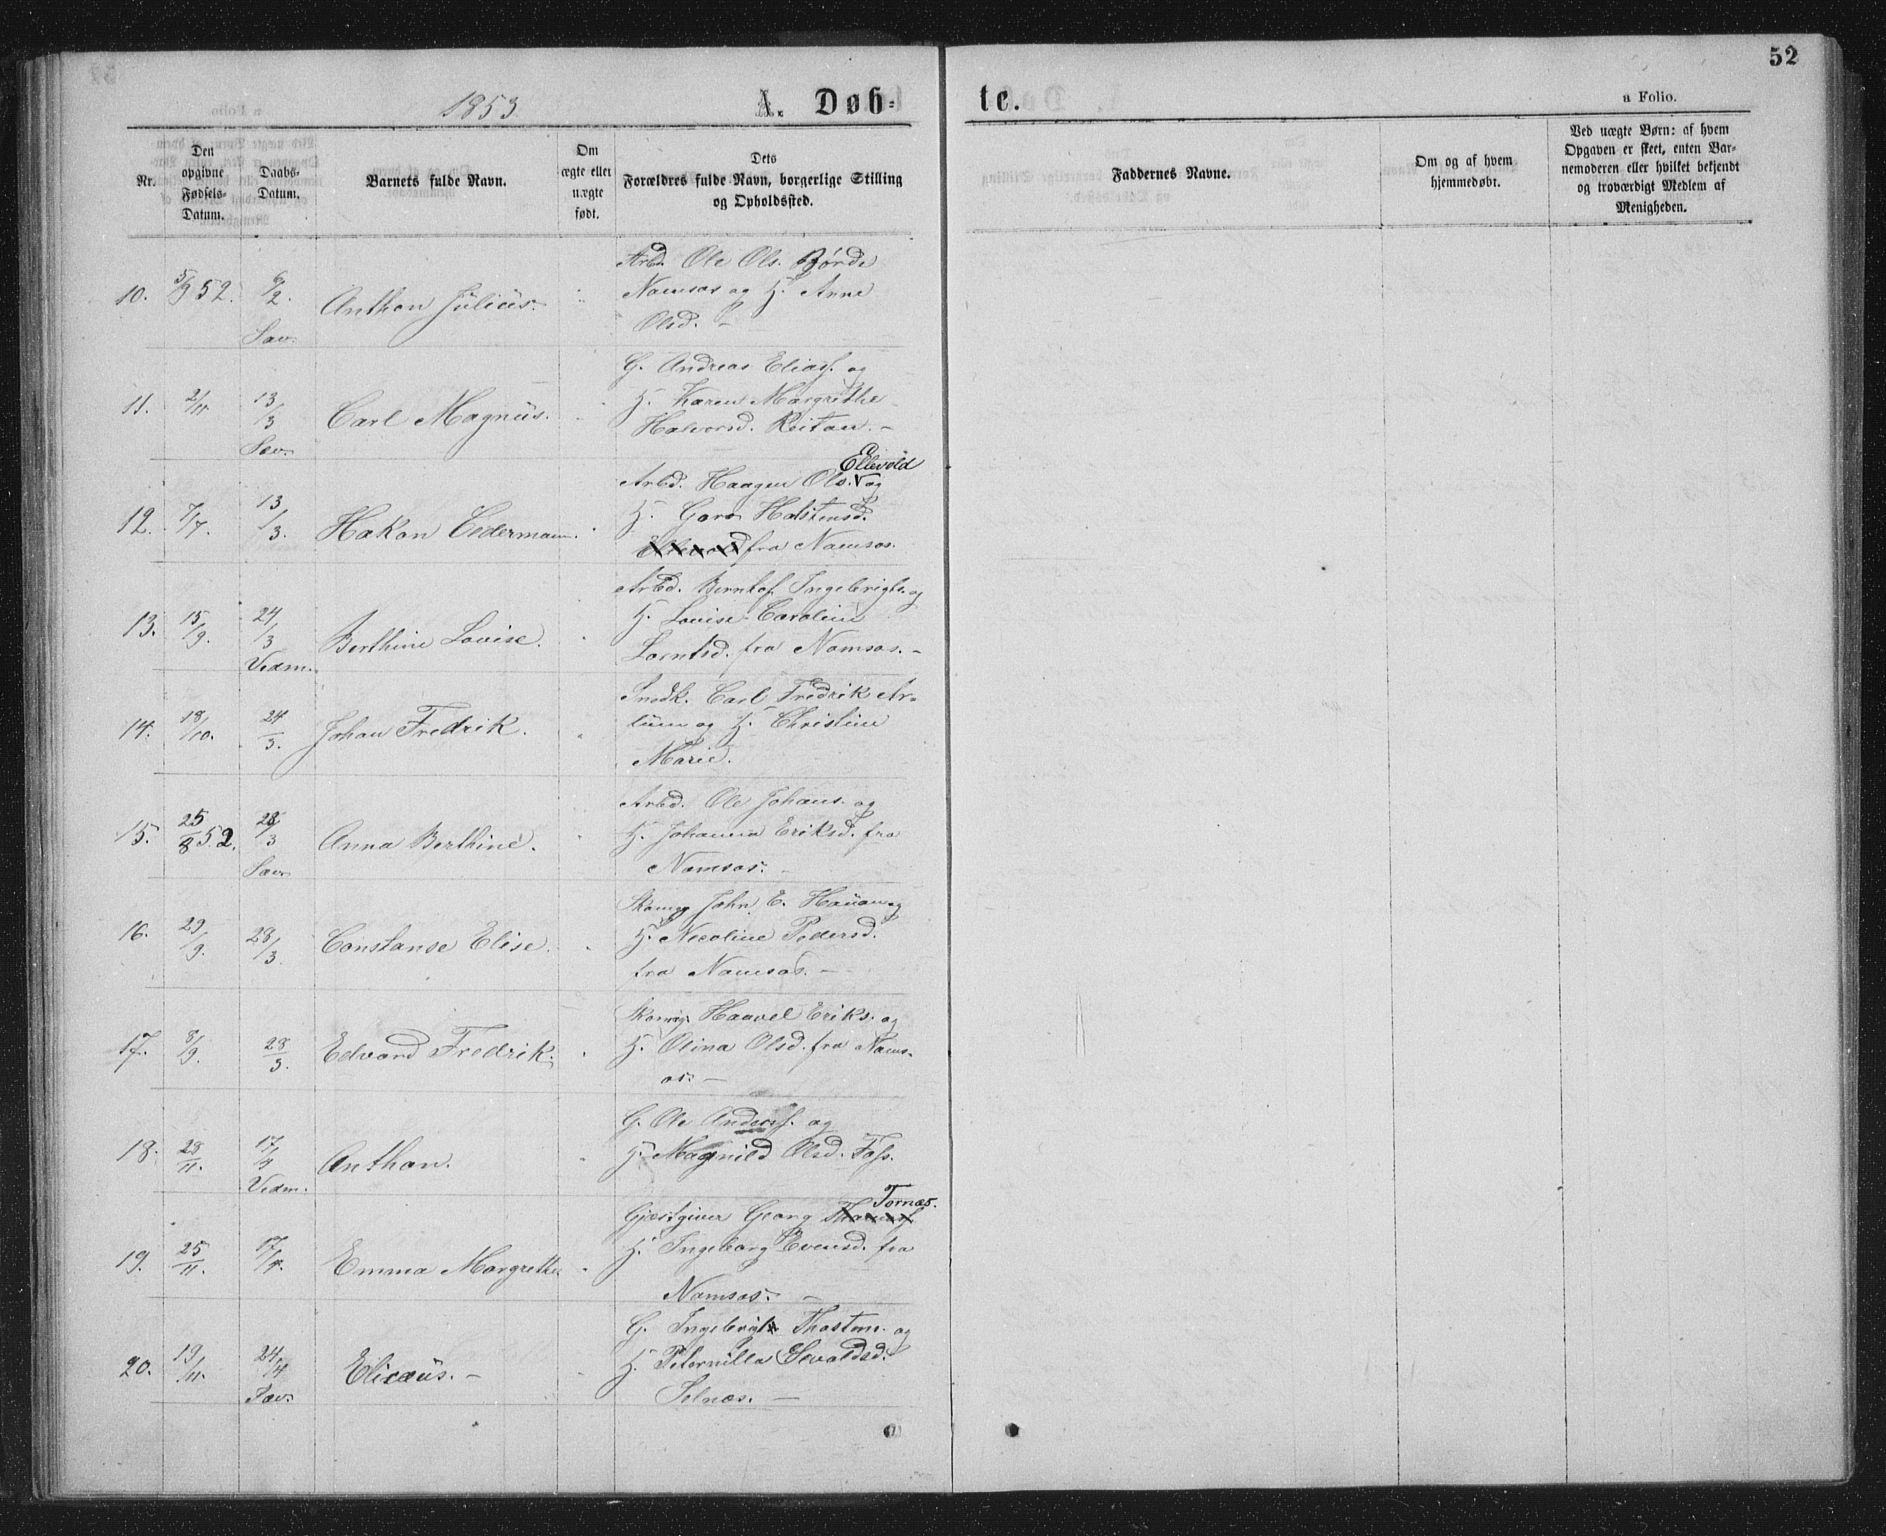 52
1853.
A. Døb-
te.
a Folio.
Nr.
Den
opgivne
Fødsels-
Datum.
Daabs-
Datum.
Barnets fulde Navn.
Om
ægte eller
uægte
født.
Dets
Forældres fulde Navn, borgerlige Stilling
og Opholdssted.
Faddernes Navne.
Om og af hvem
hjemmedøbt.
Ved uægte Børn: af hvem
Opgaven er skeet, enten Bar-
nemoderen eller hvilket bekjendt
og troværdigt Medlem af
Menigheden.
Arbd. Ole Ols. Børde
10. 5/9 52. 6/2. Anthon Julius. Namsos og H. Anne
Sæv. Olsd. –
G. Andreas Eliass. og
11. 2/11. 13/3 Carl Magnus. H. Karen Margrethe
Sæv. Halvorsd. Reitan. –
Ellevold
Arbd. Haagen Ols. og
12. 7/7. 13/3. Hakon Cederman. H. Goro Halstensd.
fra Namsos.
Arbd. Berntof Ingebrigts. og
13. 15/9. 24/3 Berthine Lovise. H. Lovise Caroline
Vedm. Lorntsd. fra Namsos. –
Snedk. Carl Fredrik Ar-
14. 18/10. 24/3. Johan Fredrik. tum og H. Christine
Marie.
Arbd. Ole Johans. og
15. 25/8 52. 28/3 Anna Berthine. H. Johanna Eriksd. fra
Sæv. Namsos. –
Skomgr John E. Hauan og
16. 29/9. 28/3. Constanse Elise. H. Nicoline Pedersd.
fra Namsos. –
Skomgr. Haavel Eriks. og
17. 8/9. 28/3. Edvard Fredrik. H. Olina Olsd. fra Nams-
os. –
G. Ole Anderss. og
18. 28/11. 17/4 Anthon. H. Magnild Olsd. Foss.
Vedm.
Tornæs.
Gjæstgiver Georg
19. 25/11. 17/4. Emma Margrethe. H. Ingeborg Evensd. fra
Namsos. –
G. Ingebrigt Thostens. og
20. 19/11. 24/4 Elicæus. – H. Peternilla Sevaldsd.
Sæv. Selnæs. –